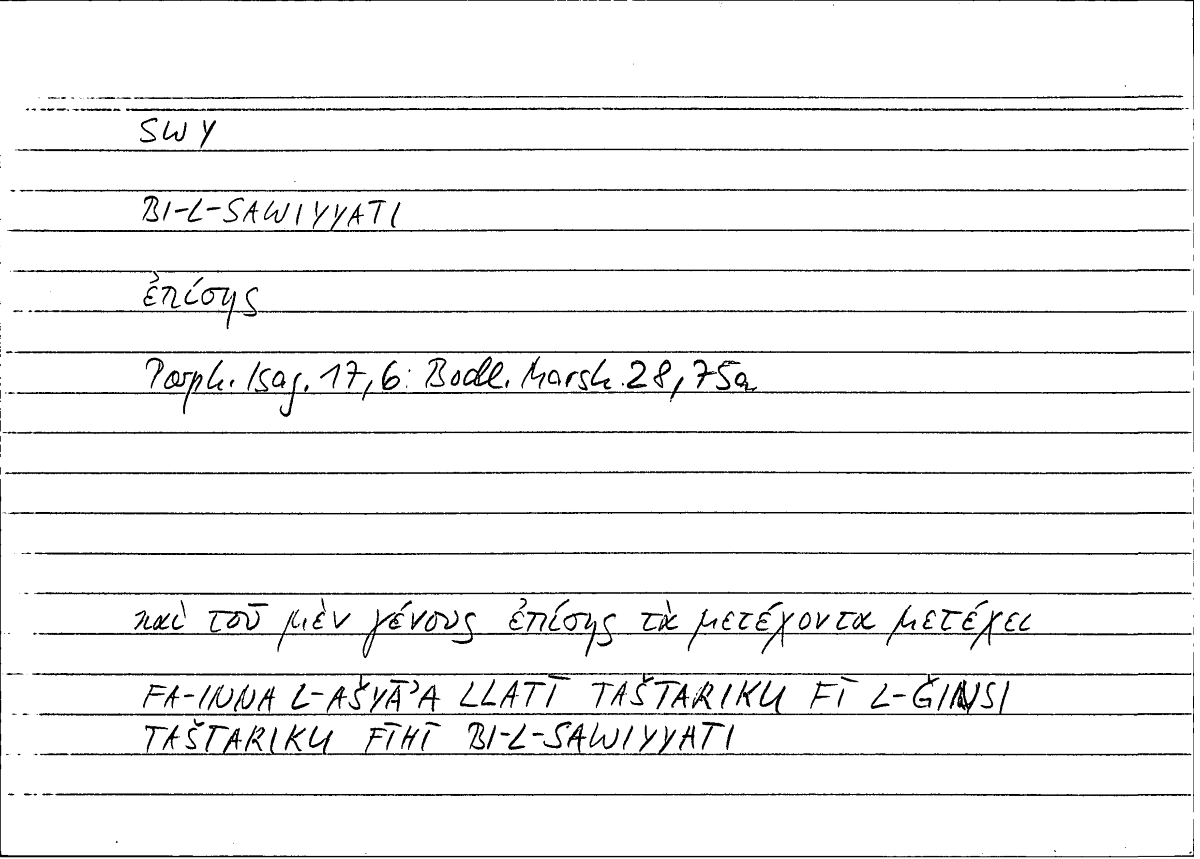 SWY
BI-L-SAWIYYATI
ἐπίσης
Porph. Isag. 17,6: Bodl. Marsh. 28,75a
καὶ τοῦ μὲν γένους ἐπίσης τὰ μετέχοντα μετέχει
FA-INNA L-AŠYĀʾA LLATĪ TAŠTARIKU FĪ L-ǦINSI
TAŠTARIKU FĪHĪ BI-L-SAWIYYATI